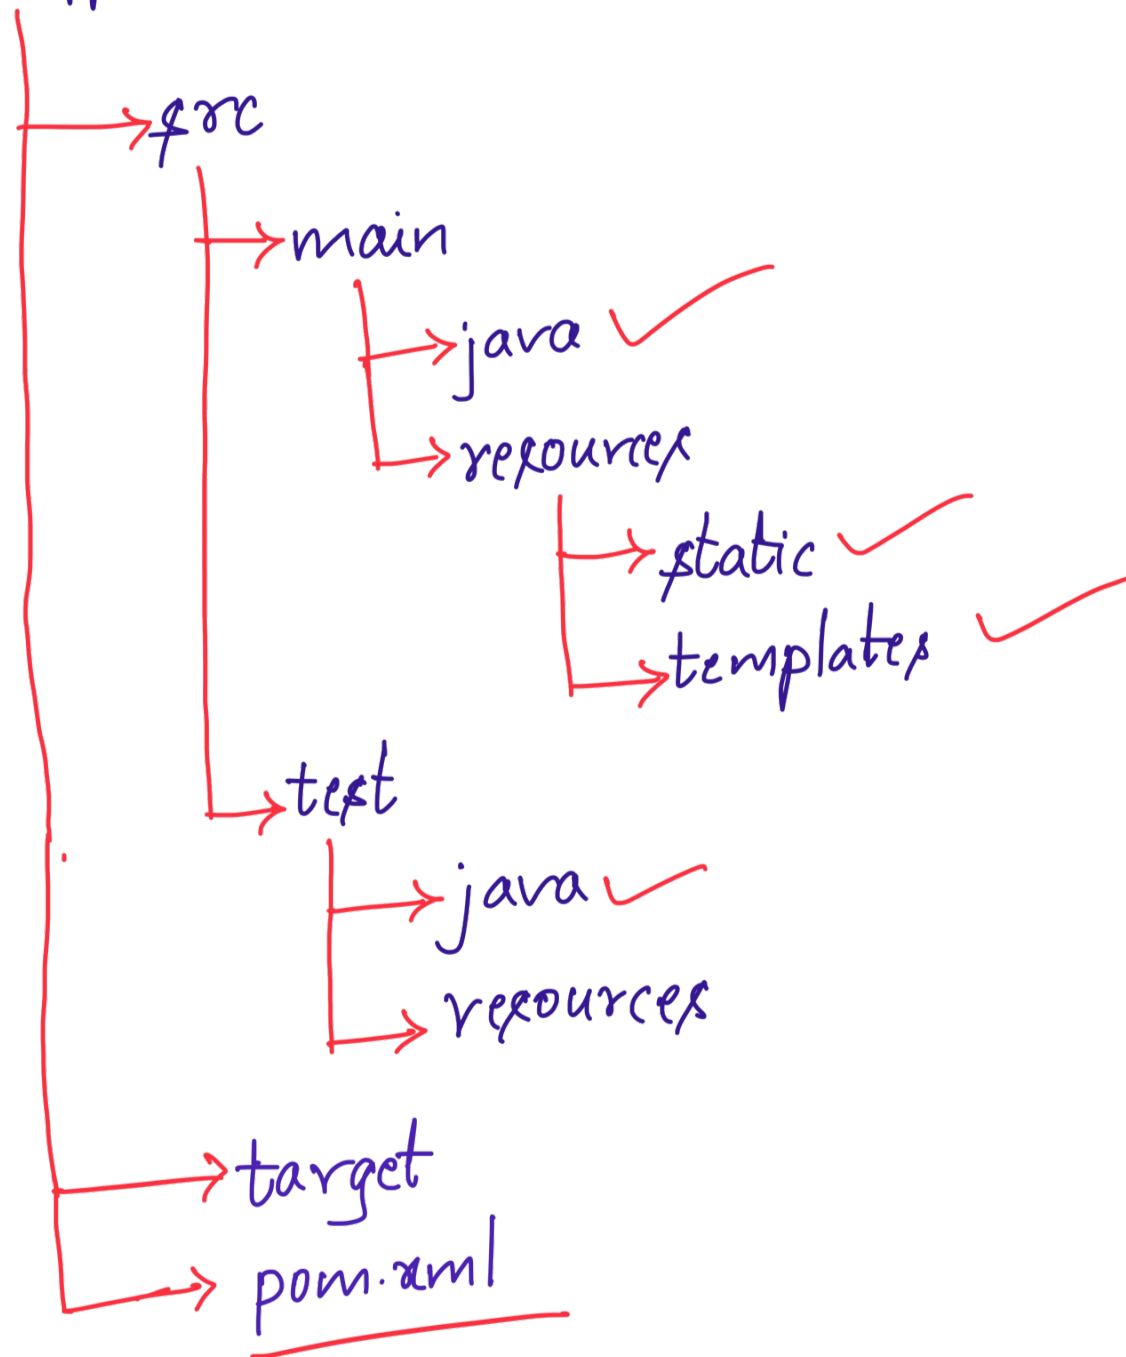 src
main
java
resources
static
templates
test
java
resources
target
pom.xml